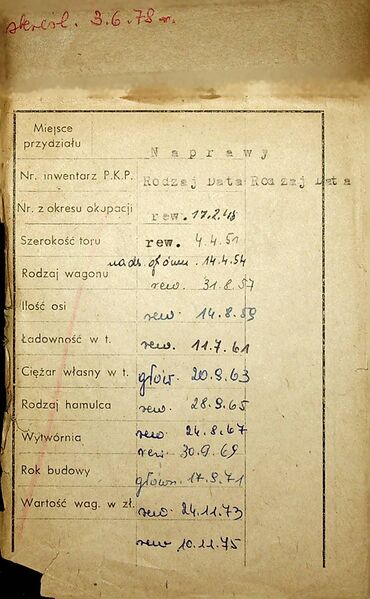 skreśl. 3.6.78 r.
Miejsce przydziału
Naprawy
Nr. inwentarz P.K.P.
Rodzaj Data Rodzaj Data
Nr. z okresu okupacji
rew. 17.2.48
Szerokość toru
rew. 4.4.51
nadz. główn. 14.4.54
Rodzaj wagonu
rew. 31.8.57
Ilość osi
rew. 14.8.59
Ładowność w t.
rew. 11.7.61
Ciężar własny w t.
głów. 20.9.63
Rodzaj hamulca
rew. 28.9.65
Wytwórnia
rew. 24.8.67
rew. 30.9.69
Rok budowy
główn. 17.9.71
Wartość wag. w zł.
rew. 24.11.73
rew 10.11.75